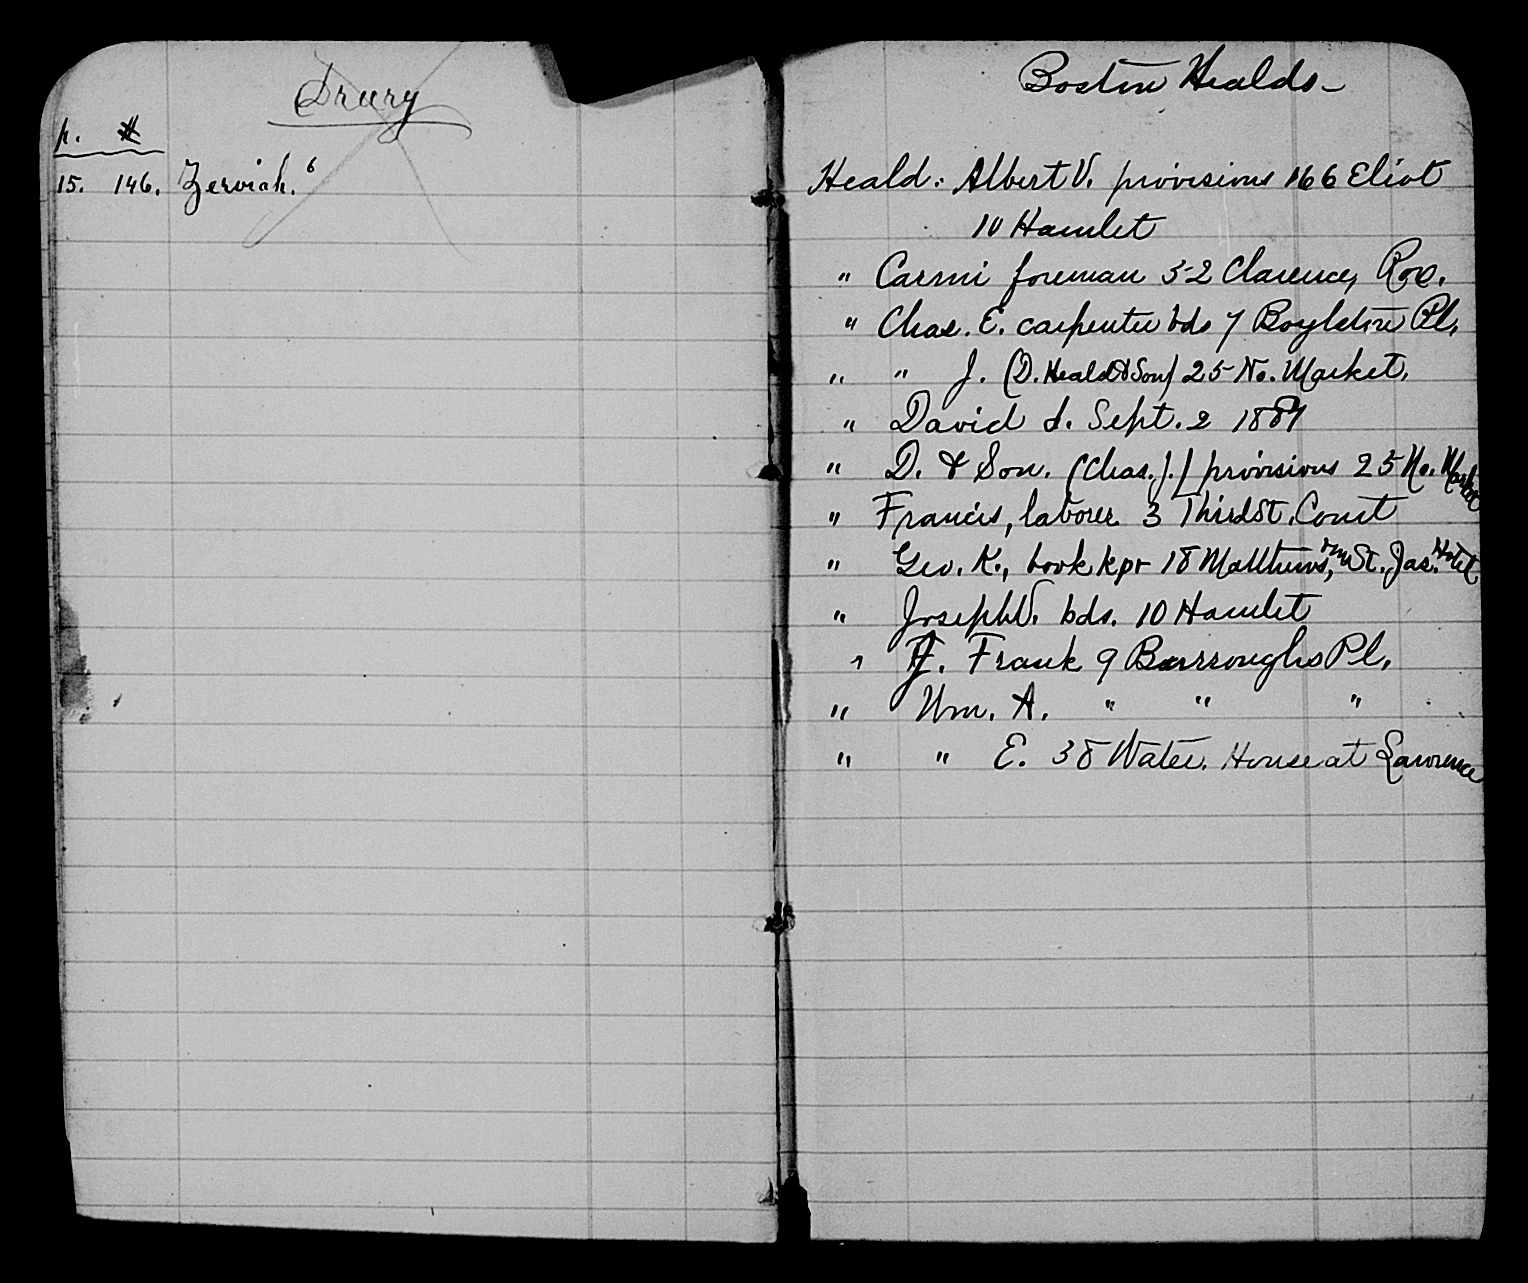 Drury
p. #
15. 146. Zerviah.⁶
Boston Healds-
Heald: Albert V. provisions 166 Eliot
10 Hamlet
" Carmi foreman 52 Clarence, Rox.
" Chas. E. carpenter bds 7 Boylston Pl.
" " J. (D. Heald & Son) 25 No. Market.
" David d. Sept. 2 1887
" D. & Son. (Chas. J.) provisions 25 No. Market
" Francis, laborer 3 Third St. Court
" Geo. K., book kpr 18 Matthews, rm St. Jas. Hotel
" Joseph V. bds. 10 Hamlet
" J. Frank 9 Burroughs Pl.
" Wm. A. " " "
" " E. 38 Water. House at Lawrence